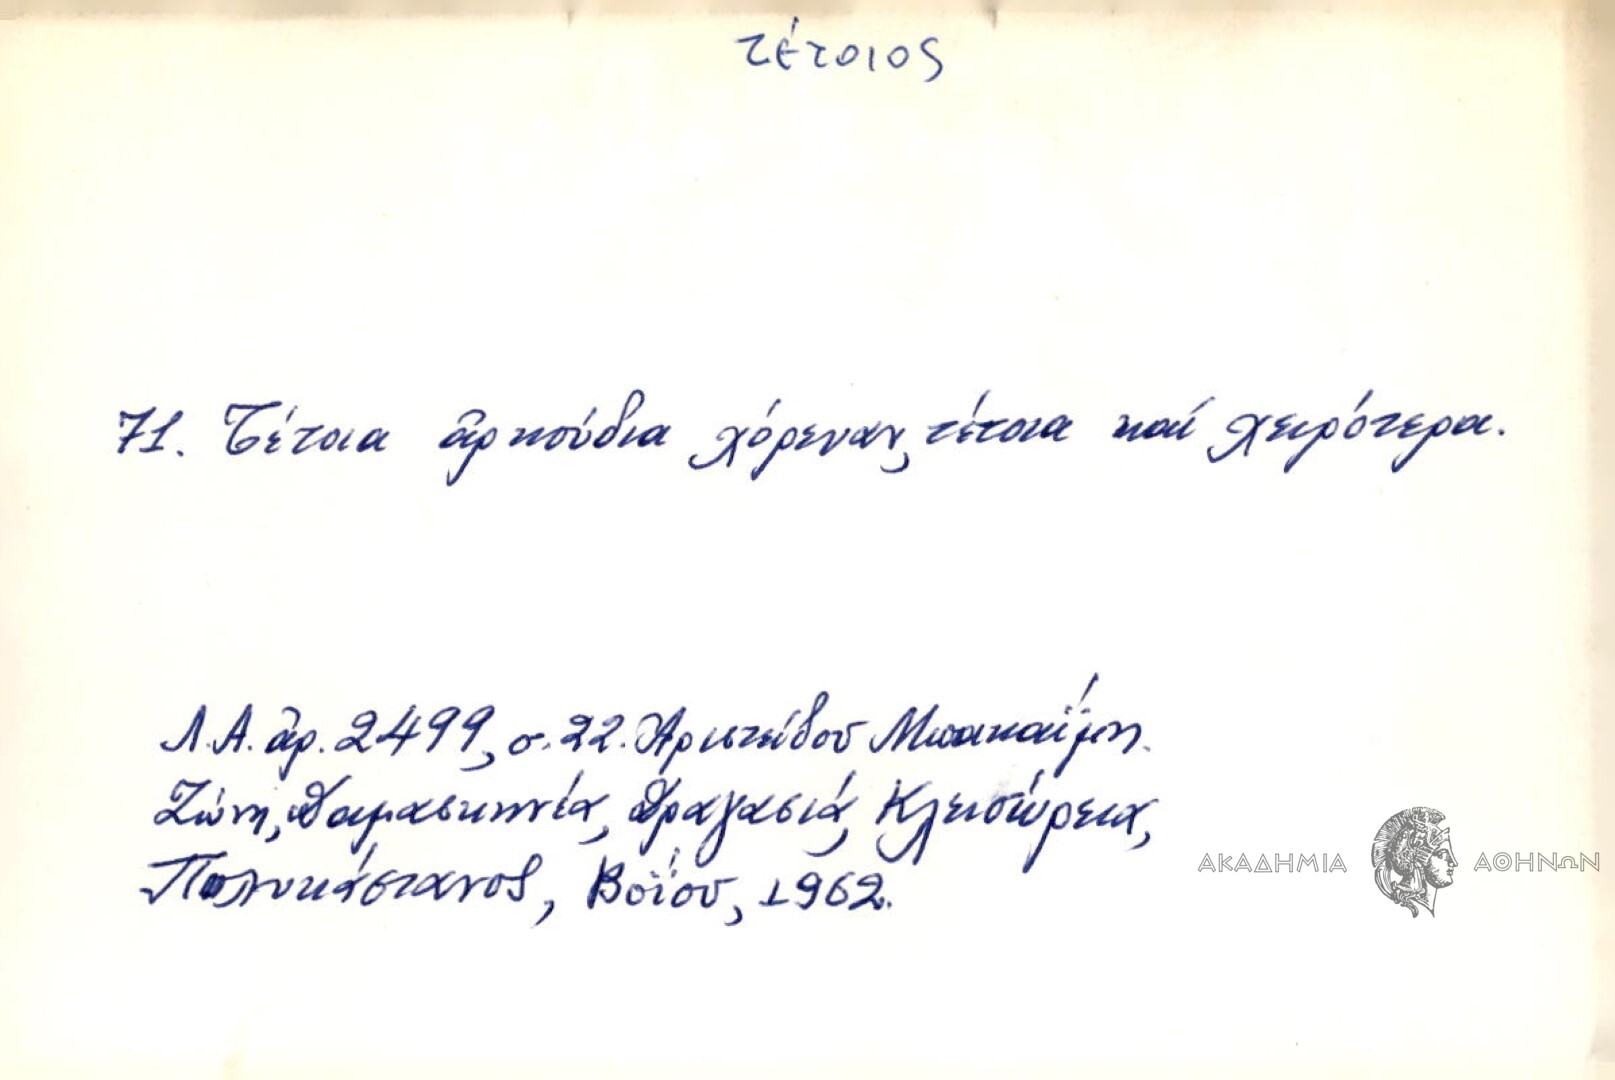 τέτοιος
71. Τέτοια ἀρκούδια χόρευαν, τέτοια καί χειρότερα.
Λ.Α. ἀρ. 2499, σ. 22. Ἀριστείδου Μπακαΐμη.
Ζώνη, Δαμασκηνιά, Δραγασιά, Κλεισώρεια,
Πολυκάστανος, Βοΐου, 1962.
ΑΚΑΔΗΜΙΑ ΑΘΗΝΩΝ